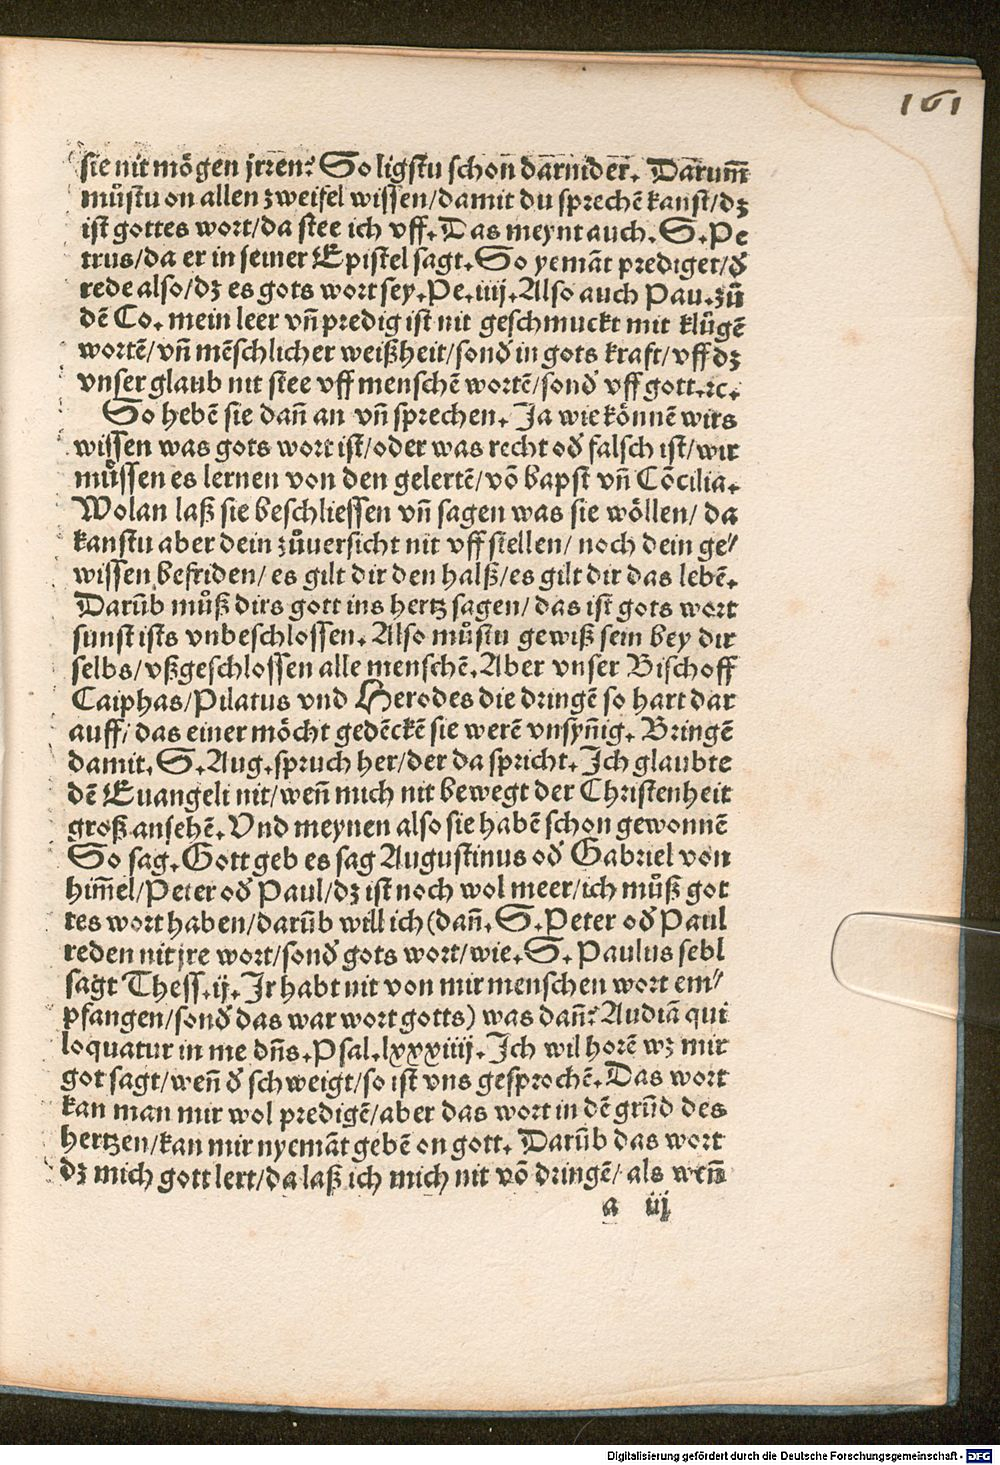 161
sie nit mögen jrren? So ligstu schon darnider. Darum̄
můstu on allen zweifel wissen/damit du sprechē kanst/dz
ist gottes wort/da stee ich vff. Das meynt auch. S. Pe
trus/da er in seiner Epistel sagt. So yemāt prediget/ď
rede also/dz es gots wort sey. Pe. iiij. Also auch Pau. zů
dē Co. mein leer vn̄ predig ist nit geschmuckt mit klůgē
wortē/vn̄ mēschlicher weißheit/sonď in gots kraft/vff dz
vnser glaub nit stee vff menschē wortē/sonď vff gott. ꝛc.
So hebē sie dan̄ an vn̄ sprechen. Ja wie könnē wirs
wissen was gots wort ist/oder was recht oď falsch ist/wir
müssen es lernen von den gelertē/vō bapst vn̄ Cōcilia.
Wolan laß sie beschliessen vn̄ sagen was sie wöllen/ da
kanstu aber dein zůuersicht nit vff stellen/ noch dein ge⸗
wissen befriden/ es gilt dir den halß/es gilt dir das lebē.
Darūb můß dirs gott ins hertz sagen/ das ist gots wort
sunst ists vnbeschlossen. Also můstu gewiß sein bey dir
selbs/vßgeschlossen alle menschē. Aber vnser Bischoff
Caiphas/Pilatus vnd Herodes die dringē so hart dar
auff/das einer möcht gedēckē sie werē vnsyn̄ig. Bringē
damit. S. Aug. spruch her/der da spricht. Ich glaubte
dē Euangeli nit/wen̄ mich nit bewegt der Christenheit
groß ansehē. Vnd meynen also sie habē schon gewonnē
So sag. Gott geb es sag Augustinus oď Gabriel von
him̄el/Peter oď Paul/dz ist noch wol meer/ich můß got
tes wort haben/darūb will ich (dan̄. S. Peter oď Paul
reden nit jre wort/sonď gots wort/wie. S. Paulus sebl
sagt Thess. ij. Ir habt nit von mir menschen wort em⸗
pfangen/sonď das war wort gotts) was dan̄? Audiā qui
loquatur in me dn̄s. Psal. lxxxiiij. Ich wil horē wz mir
got sagt/wen̄ ď schweigt/so ist vns gesprochē. Das wort
kan man mir wol predigē/aber das wort in dē grūd des
hertzen/kan mir nyemāt gebē on gott. Darūb das wort
dz mich gott lert/da laß ich mich nit vō dringē/ als wen̄
a iij
Digitalisierung gefördert durch die Deutsche Forschungsgemeinschaft - DFG